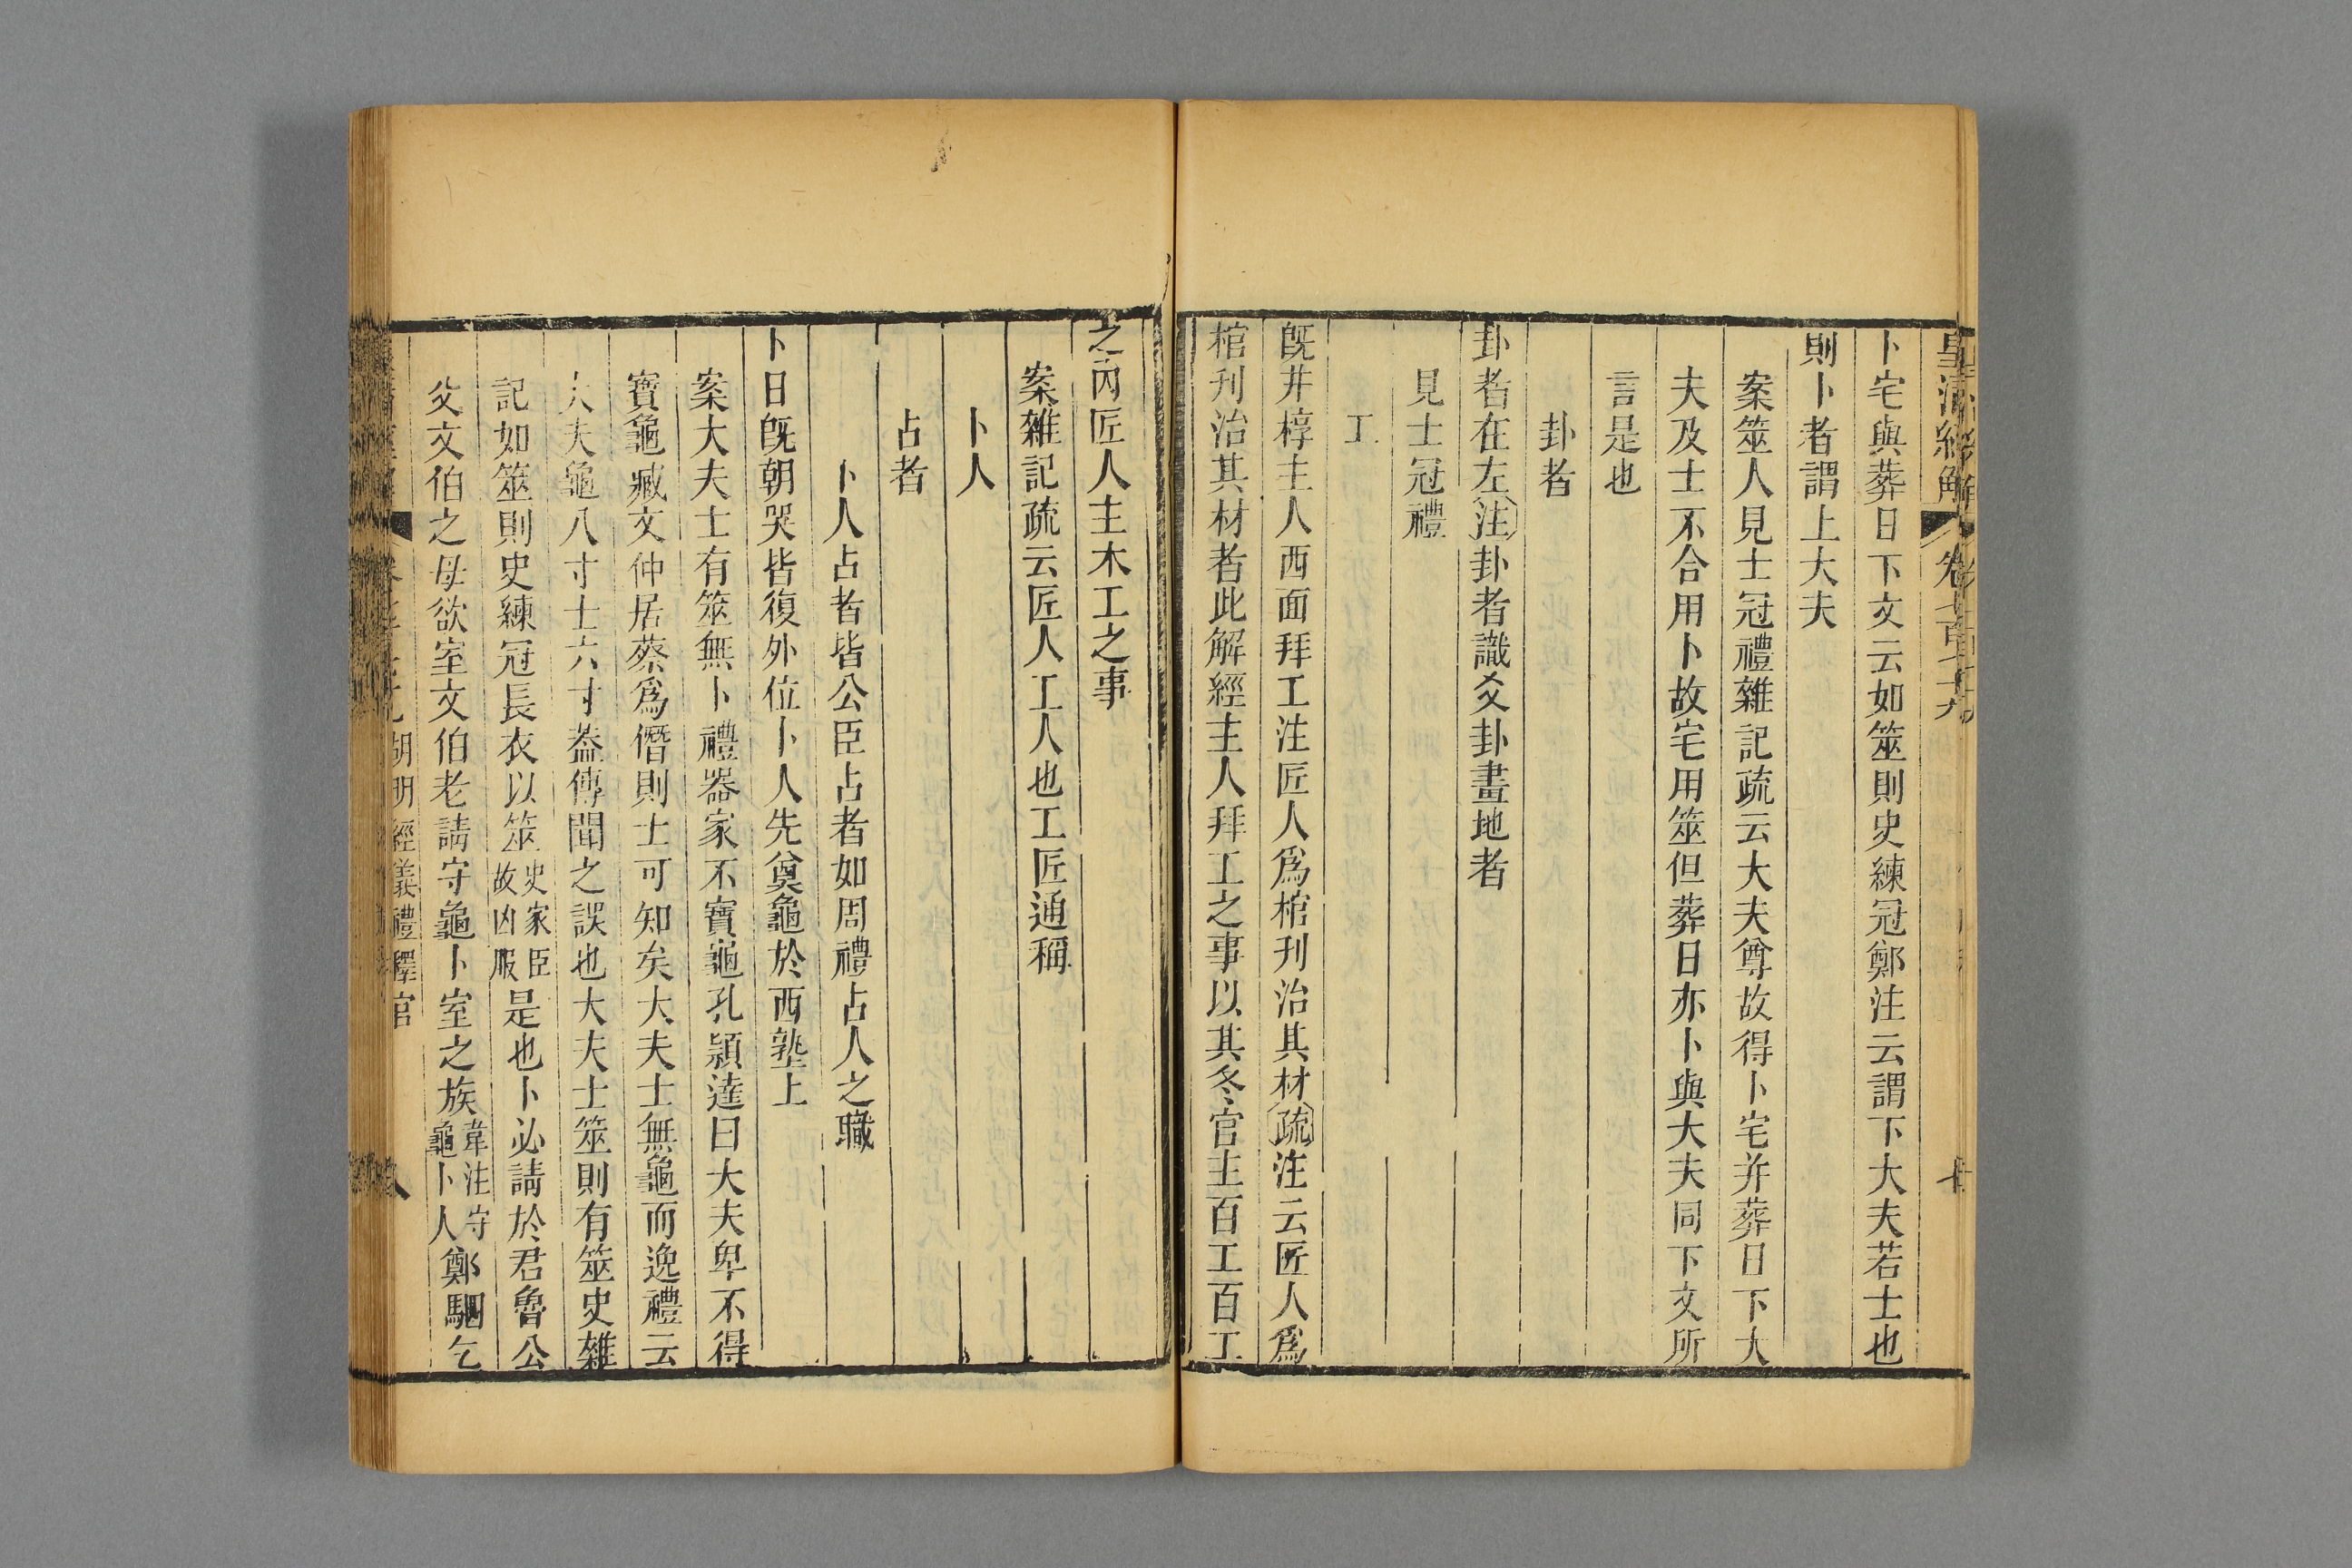 皇清經解
卜宅與葬日下文云如筮則史練冠鄭注云謂下大夫若士也
則卜者謂上大夫
案筮人見士冠禮雜記疏云大夫尊故得卜宅并葬日下大
夫及士不合用卜故宅用筮但葬日亦卜與大夫同下文所
言是也
卦者
卦者在左注卦者識爻卦畫地者
見士冠禮
工
旣井椁主人西面拜工注匠人爲棺刊治其材疏注云匠人爲
棺刊治其材者此解經主人拜工之事以其冬官主百工百工
之內匠人主木工之事
案雜記疏云匠人工人也工匠通稱
卜人
占者
卜人占者皆公臣占者如周禮占人之職
卜日旣朝哭皆復外位卜人先奠龜於西塾上
案大夫士有筮無卜禮器家不寶龜孔頴達曰大夫卑不得
寶龜臧文仲居蔡爲僭則士可知矣大夫士無龜而逸禮云
大夫龜八寸士六寸葢傳聞之誤也大夫士筮則有筮史雜
記如筮則史練冠長衣以筮史家臣故凶服是也卜必請於君魯公
父文伯之母欲室文伯老請守龜卜室之族韋注守龜卜人鄭駟乞
胡明經儀禮釋官